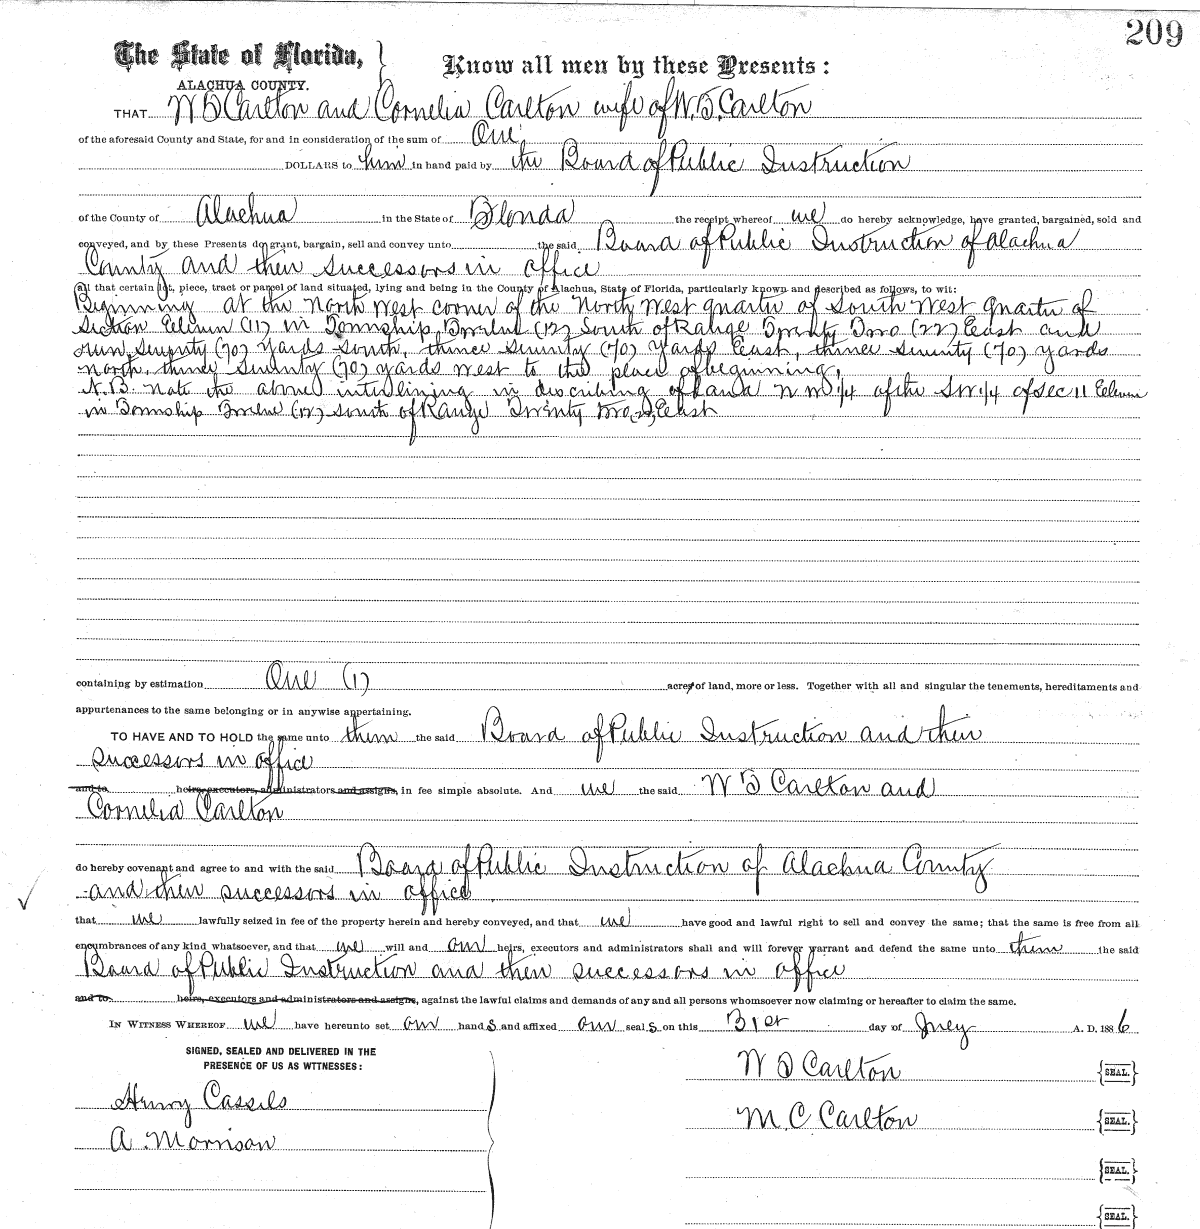 209
The State of Florida,
ALACHUA COUNTY.
Know all men by these Presents:
THAT W S Carlton and Cornelia Carlton wife of W. S. Carlton
of the aforesaid County and State, for and in consideration of the sum of One
DOLLARS to him in hand paid by the Board of Public Instruction
of the County of Alachua in the State of Florida the receipt whereof we do hereby acknowledge, have granted, bargained, sold and
conveyed, and by these Presents do grant, bargain, sell and convey unto the said Board of Public Instruction of Alachua
County and their successors in office
all that certain lot, piece, tract or parcel of land situated, lying and being in the County of Alachua, State of Florida, particularly known and described as follows, to wit:
Beginning at the North West corner of the North West quarter of South West quarter of
Section Eleven (11) in Township Twelve (12) South of Range Twenty Two (22) East and
run seventy (70) yards South, thence seventy (70) yards East, thence seventy (70) yards
north, thence seventy (70) yards west to the place of beginning,
N.B. Note the above interlining in describing of land N W 1/4 of the S W 1/4 of Sec 11 Eleven
in Township Twelve (12) South of Range Twenty Two (22) East
containing by estimation One (1) acres of land, more or less. Together with all and singular the tenements, hereditaments and
appurtenances to the same belonging or in anywise appertaining.
TO HAVE AND TO HOLD the same unto them the said Board of Public Instruction and their
successors in office
and to heirs, executors, administrators and assigns, in fee simple absolute. And we the said W S Carlton and
Cornelia Carlton
do hereby covenant and agree to and with the said Board of Public Instruction of Alachua County
and their successors in office
that we lawfully seized in fee of the property herein and hereby conveyed, and that we have good and lawful right to sell and convey the same; that the same is free from all
encumbrances of any kind whatsoever, and that we will and our heirs, executors and administrators shall and will forever warrant and defend the same unto them the said
Board of Public Instruction and their successors in office
and to heirs, executors and administrators and assigns, against the lawful claims and demands of any and all persons whomsoever now claiming or hereafter to claim the same.
IN WITNESS WHEREOF we have hereunto set our hands and affixed our seals on this 31st day of July A. D. 1886
SIGNED, SEALED AND DELIVERED IN THE
PRESENCE OF US AS WITNESSES:
W S Carlton SEAL.
Henry Cassels
M C Carlton SEAL.
A. Morrison
SEAL.
SEAL.